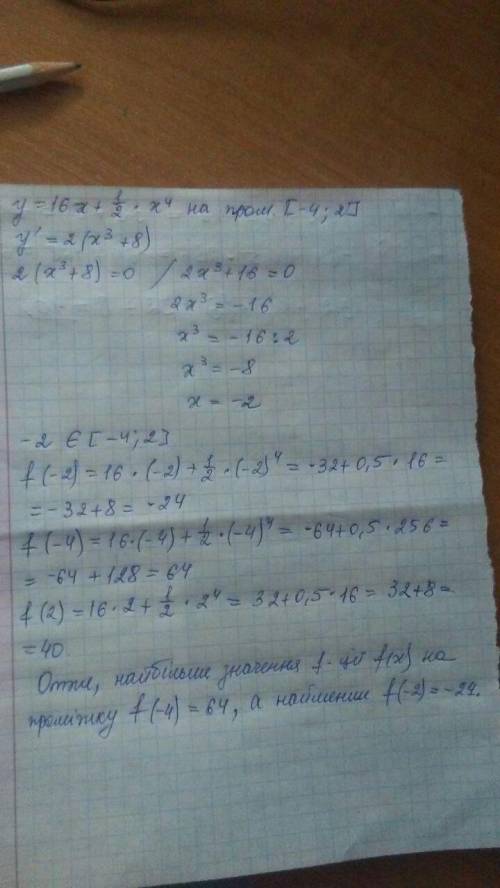 y = 16x + 1/2 · x⁴ на пром. [-4; 2]
y' = 2(x³+8)
2(x³+8)=0 / 2x³+16 = 0
2x³ = -16
x³ = -16:2
x³ = -8
x = -2
-2 ∈ [-4; 2]
f(-2) = 16 · (-2) + 1/2 · (-2)⁴ = -32+0,5 · 16 =
= -32+8 = -24
f(-4) = 16·(-4) + 1/2 · (-4)⁴ = -64+0,5 · 256 =
= -64 + 128 = 64
f(2) = 16 · 2 + 1/2 · 2⁴ = 32+0,5 · 16 = 32+8 =
= 40.
Отже, найбільше значення ф-ції f(x) на
проміжку f(-4) = 64, а найменше f(-2) = -24.